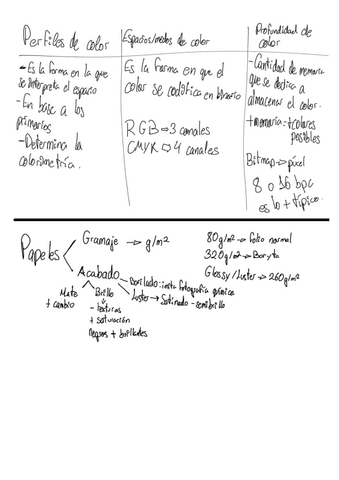 Perfiles de color
- Es la forma en la que
se interpreta el espacio
- En base a los
primarios
- Determina la
colorimetría.
Espacios/modos de color
Es la forma en que el
color se codifica en binario
RGB → 3 canales
CMYK → 4 canales
Profundidad de
color
- Cantidad de memoria
que se dedica a
almacenar el color.
+ memoria → + colores
posibles
Bitmap → píxel
8 o 16 bpc
es lo + típico.
Papeles
Gramaje → g/m²
80g/m² → folio normal
320g/m² → Baryta
Glossy/Luster → 260g/m²
Acabado
Mate
+ cambio
Brillo
- texturas
+ saturación
negros + brillantes
imita fotografía química
Luster → Satinado - semibrillo